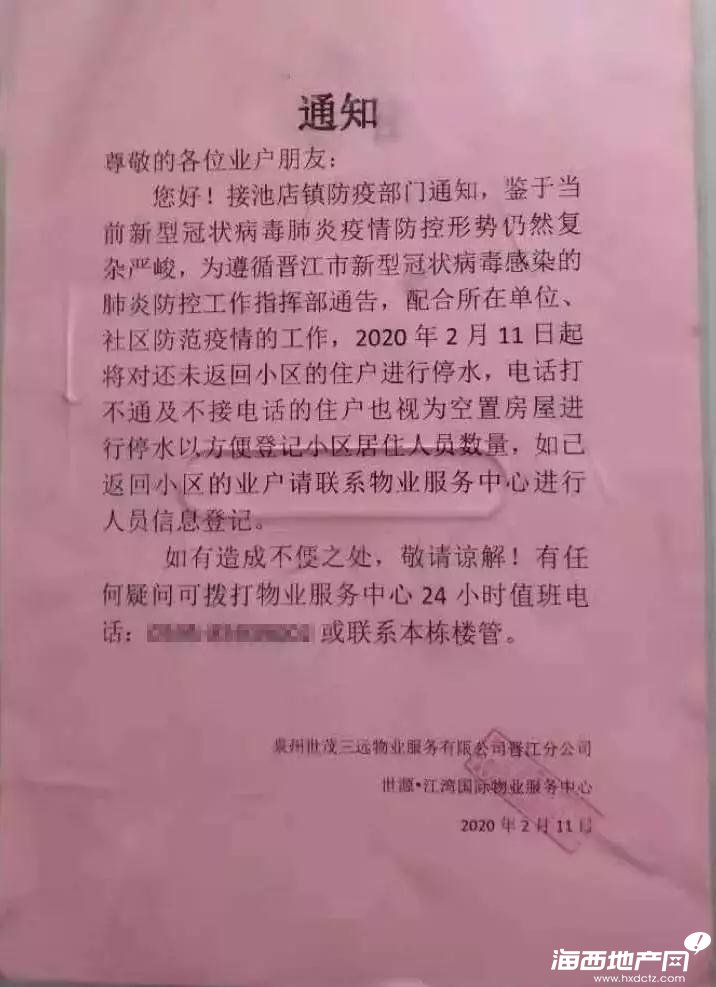 通知
尊敬的各位业户朋友：
您好！接池店镇防疫部门通知，鉴于当
前新型冠状病毒肺炎疫情防控形势仍然复
杂严峻，为遵循晋江市新型冠状病毒感染的
肺炎防控工作指挥部通告，配合所在单位、
社区防范疫情的工作，2020年2月11日起
将对还未返回小区的住户进行停水，电话打
不通及不接电话的住户也视为空置房屋进
行停水以方便登记小区居住人员数量，如己
返回小区的业户请联系物业服务中心进行
人员信息登记。
如有造成不便之处，敬请谅解！有任
何疑问可拨打物业服务中心24小时值班电
话：或联系本栋楼管。
泉州世茂三远物业服务有限公司晋江分公司
世源•江湾国际物业服务中心
2020年2月11号
海西地产网
www.hxdctz.com